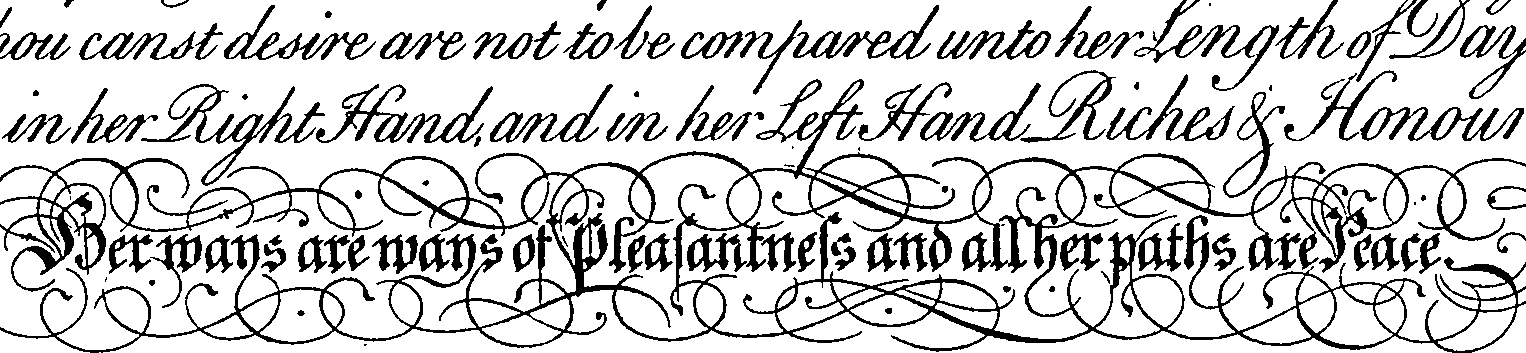 hou canst desire are not to be compared unto her Length of Day
in her Right Hand, and in her Left Hand Riches & Honour
Her ways are ways of Pleaſantneſs and all her paths are Peace.